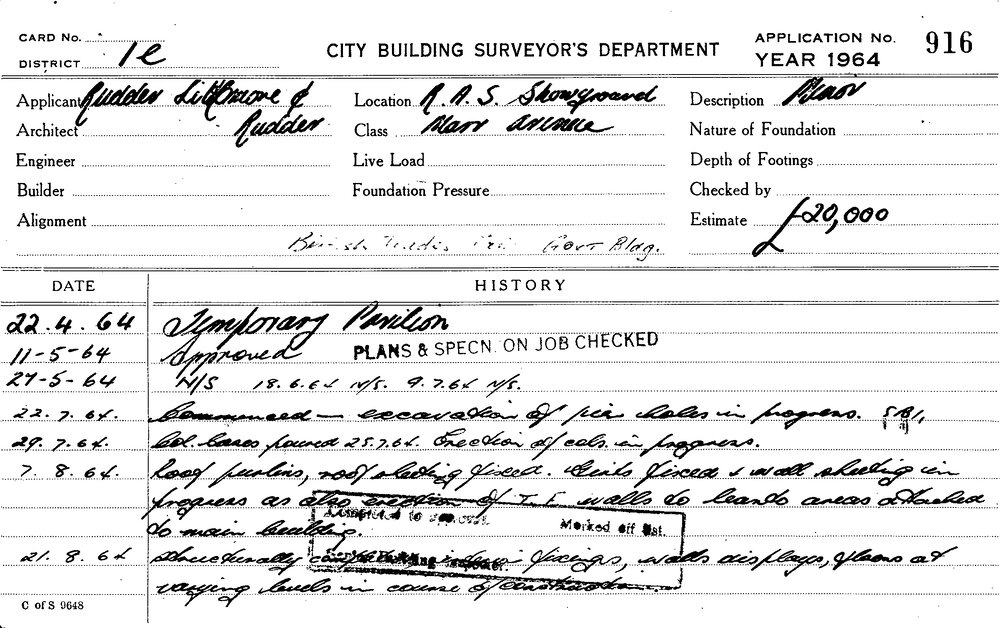 CARD No.
DISTRICT 1e
CITY BUILDING SURVEYOR'S DEPARTMENT
APPLICATION No. 916
YEAR 1964
Applicant Rudder Littlemore &
Architect Rudder
Engineer
Builder
Alignment
Location R. A. S. Showground
Class Avenue
Live Load
Foundation Pressure
Description
Nature of Foundation
Depth of Footings
Checked by
Estimate £20,000
British Govt Bldg.
DATE HISTORY
22.4.64 Temporary Pavilion
11-5-64 Approved PLANS & SPECN. ON JOB CHECKED
27-5-64 N/S 18.6.64 N/S. 9.7.64 N/S.
22.7.64. Commenced — excavation of pier holes in progress.
29.7.64. Col. bases poured 25.7.64. Erection of cols. in progress.
7.8.64. Roof purlins, roof sheeting fixed. Girts fixed & wall sheeting in
progress as also erection of T.F. walls to leanto areas attached
to main building.
Marked off list.
21.8.64 Structurally fixings, walls displays, floors at
varying levels in course of construction.
C of S 9648